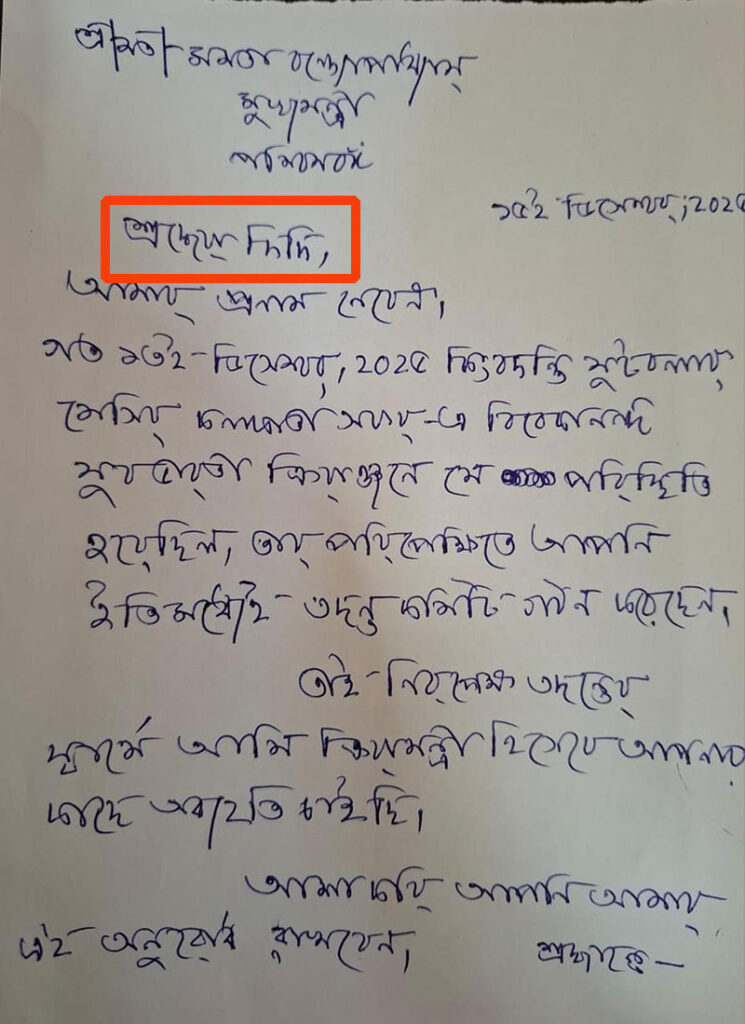 শ্রীমতী মমতা বন্দ্যোপাধ্যায়
মুখ্যমন্ত্রী
পশ্চিমবঙ্গ
১৫ই ডিসেম্বর, 2025
শ্রদ্ধেয় দিদি,
আমার প্রনাম নেবেন,
গত ১৩ই ডিসেম্বর, 2025 কিংবদন্তি ফুটবলার
মেসির কলকাতা সফর-এ বিবেকানন্দ
যুবভারতী ক্রীড়াঙ্গনে যে পরিস্থিতি
হয়েছিল, তার পরিপ্রেক্ষিতে আপনি
ইতিমধ্যেই তদন্ত কমিটি গঠন করেছেন,
তাই নিরপেক্ষ তদন্তের
স্বার্থে আমি ক্রীড়ামন্ত্রী হিসেবে আপনার
কাছে অব্যহতি চাইছি,
আশা করি আপনি আমার
এই অনুরোধ রাখবেন,
শ্রদ্ধান্তে—